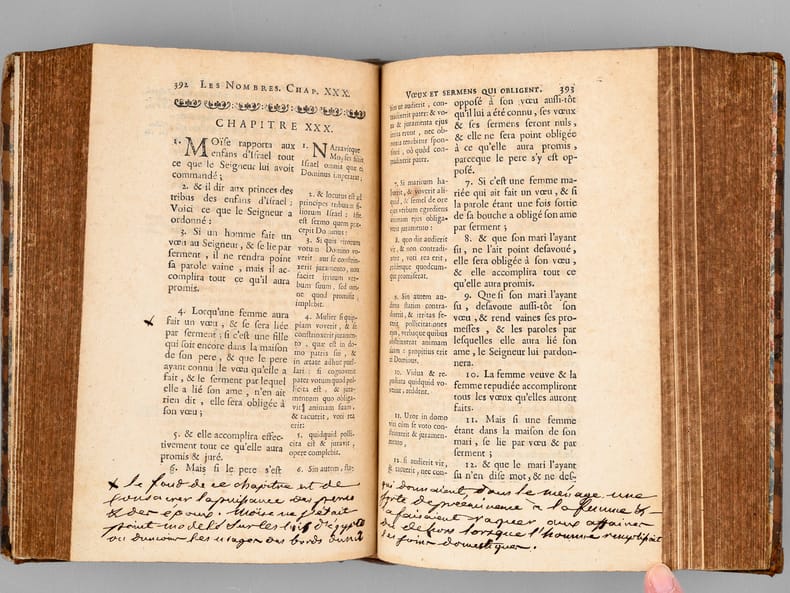 392 LES NOMBRES. CHAP. XXX.
CHAPITRE XXX.
1. MOïse rapporta aux
enfans d'Israel tout
ce que le Seigneur lui avoit
commandé ;
2. & il dit aux princes des
tribus des enfans d'Israel :
Voici ce que le Seigneur a
ordonné :
3. Si un homme fait un
vœu au Seigneur, & se lie par
serment , il ne rendra point
sa parole vaine , mais il ac-
complira tout ce qu'il aura
promis.
4. Lorsqu'une femme aura
fait un vœu , & se sera liée
par serment ; si c'est une fille
qui soit encore dans la maison
de son pere , & que le pere
ayant connu le vœu qu'elle a
fait , & le serment par lequel
elle a lié son ame , n'en ait
rien dit , elle sera obligée à
son vœu ;
5. & elle accomplira effec-
tivement tout ce qu'elle aura
promis & juré.
6. Mais si le pere s'est
1. NArravitque
Moyses filiis
Israel omnia quæ ei
Dominus imperarat ;
2. & locutus est ad
principes tribuum fi-
liorum Israel : Iste
est sermo quem præ-
cepit Dominus :
3. Si quis virorum
votum Domino vo-
verit , aut se constrin-
xerit juramento , non
faciet irritum ver-
bum suum , sed om-
ne quod promisit ,
implebit.
4. Mulier si quip-
piam voverit , & se
constrinxerit juramen-
to , quæ est in do-
mo patris sui , &
in ætate adhuc puel-
lari : si cognoverit
pater votum quod pol-
licita est , & jura-
mentum quo obliga-
vit animam suam ,
& tacuerit , voti rea
erit :
5. quidquid polli-
cita est & juravit ,
opere complebit.
6. Sin autem , sta-
le fond de ce chapitre est de
consacrer la puissance des peres
& des époux. Moïse ne s'était
point modelé sur les loix d'égypte
ou du moins les usages des bords du nil
VŒUX ET SERMENS QUI OBLIGENT. 393
tim ut audierit , con-
tradixerit pater : & vo-
ta & juramenta ejus
irrita erunt , nec ob-
noxia tenebitur spon-
sioni , eò quòd con-
tradixerit pater.
7. Si maritum ha-
buerit , & voverit ali-
quid , & semel de ore
ejus verbum egrediens
animam ejus obliga-
verit juramento :
8. quo die audierit
vir , & non contradi-
xerit , voti rea erit ,
reddetque quodcum-
que promiserat.
9. Sin autem au-
diens statim contra-
dixerit , & irritas fe-
cerit pollicitationes
ejus , verbaque quibus
obstrinxerat animam
suam : propitius erit
ei Dominus.
10. Vidua & re-
pudiata quidquid vo-
verint , reddent.
11. Uxor in domo
viri cùm se voto con-
strinxerit & juramen-
to ,
12. si audierit vir ,
& tacuerit , nec con-
opposé à son vœu aussi-tôt
qu'il lui a été connu , ses vœux
& ses sermens seront nuls ,
& elle ne sera point obligée
à ce qu'elle aura promis ,
parceque le pere s'y est op-
posé.
7. Si c'est une femme ma-
riée qui ait fait un vœu , & si
la parole étant une fois sortie
de sa bouche a obligé son ame
par serment ;
8. & que son mari l'ayant
su , ne l'ait point desavoué ,
elle sera obligée à son vœu ,
& elle accomplira tout ce
qu'elle aura promis.
9. Que si son mari l'ayant
su , desavoue aussi-tôt son
vœu , & rend vaines ses pro-
messes , & les paroles par
lesquelles elle aura lié son
ame , le Seigneur lui pardon-
nera.
10. La femme veuve & la
femme repudiée accompliront
tous les vœux qu'elles auront
faits.
11. Mais si une femme
étant dans la maison de son
mari , se lie par vœu & par
serment ;
12. & que le mari l'ayant
su n'en dise mot , & ne des-
qui donnaient, dans le ménage une
sorte de preeminence à la femme &
la faisaient vaquer aux affaires
du dehors lorsque l'homme remplissait
les soins domestiques.